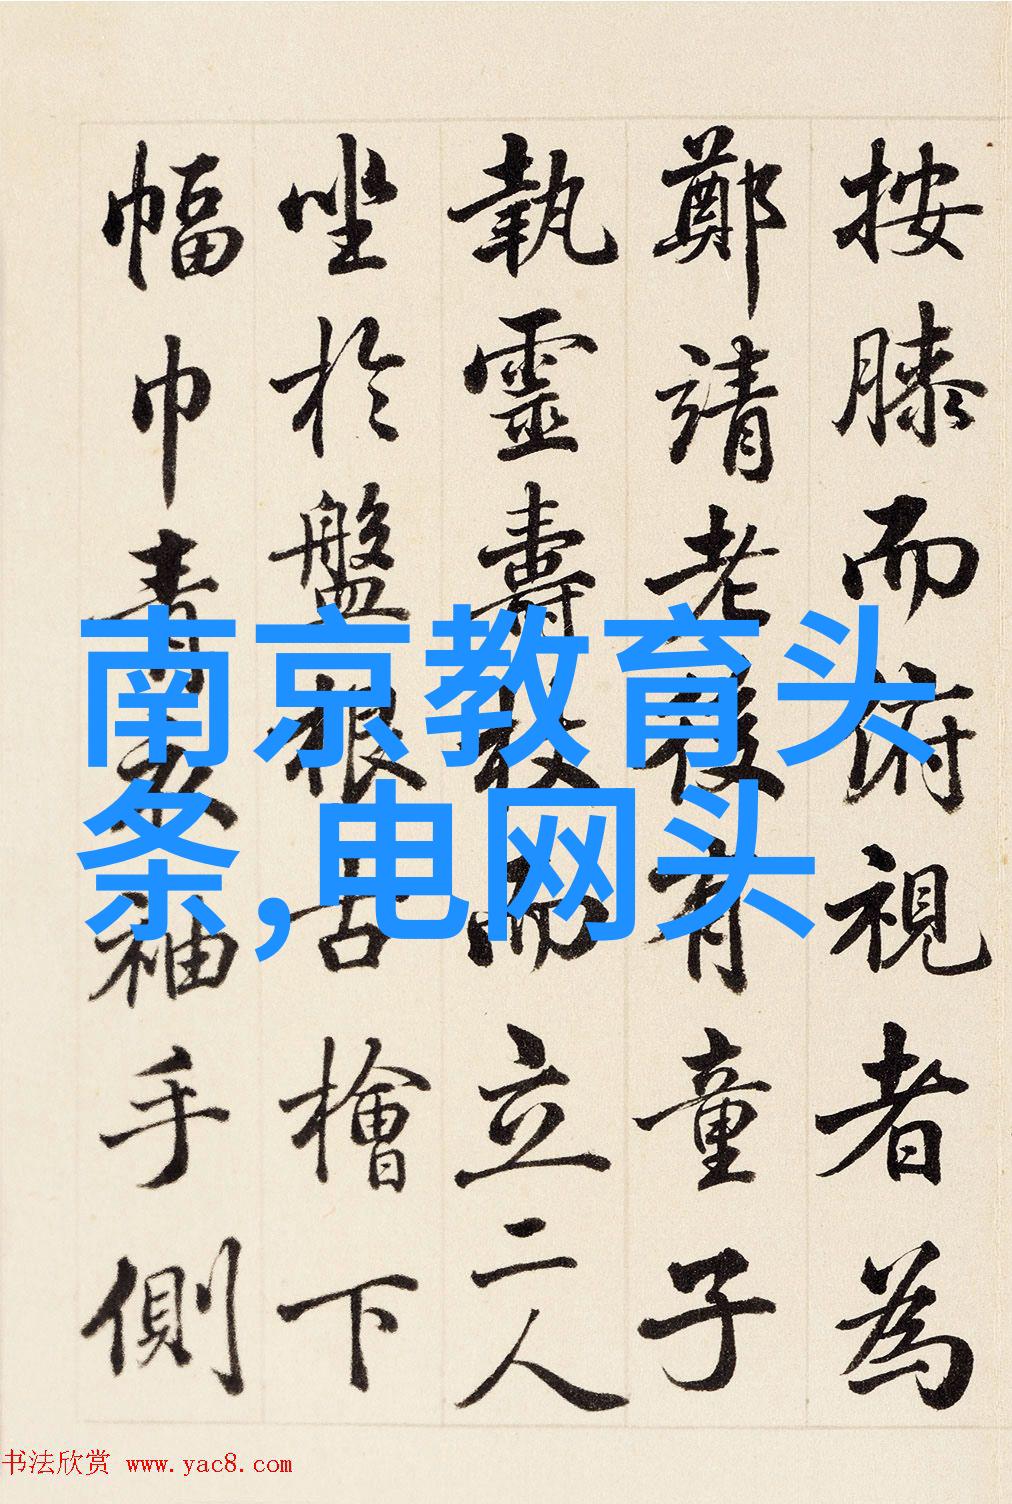 按膝而俯視者為
鄭靖老後有童子
執靈壽杖而立二人
坐於盤根古檜下
幅巾青衣袖手側
南京教育头
条,电网头
书法欣赏 www.yac8.com